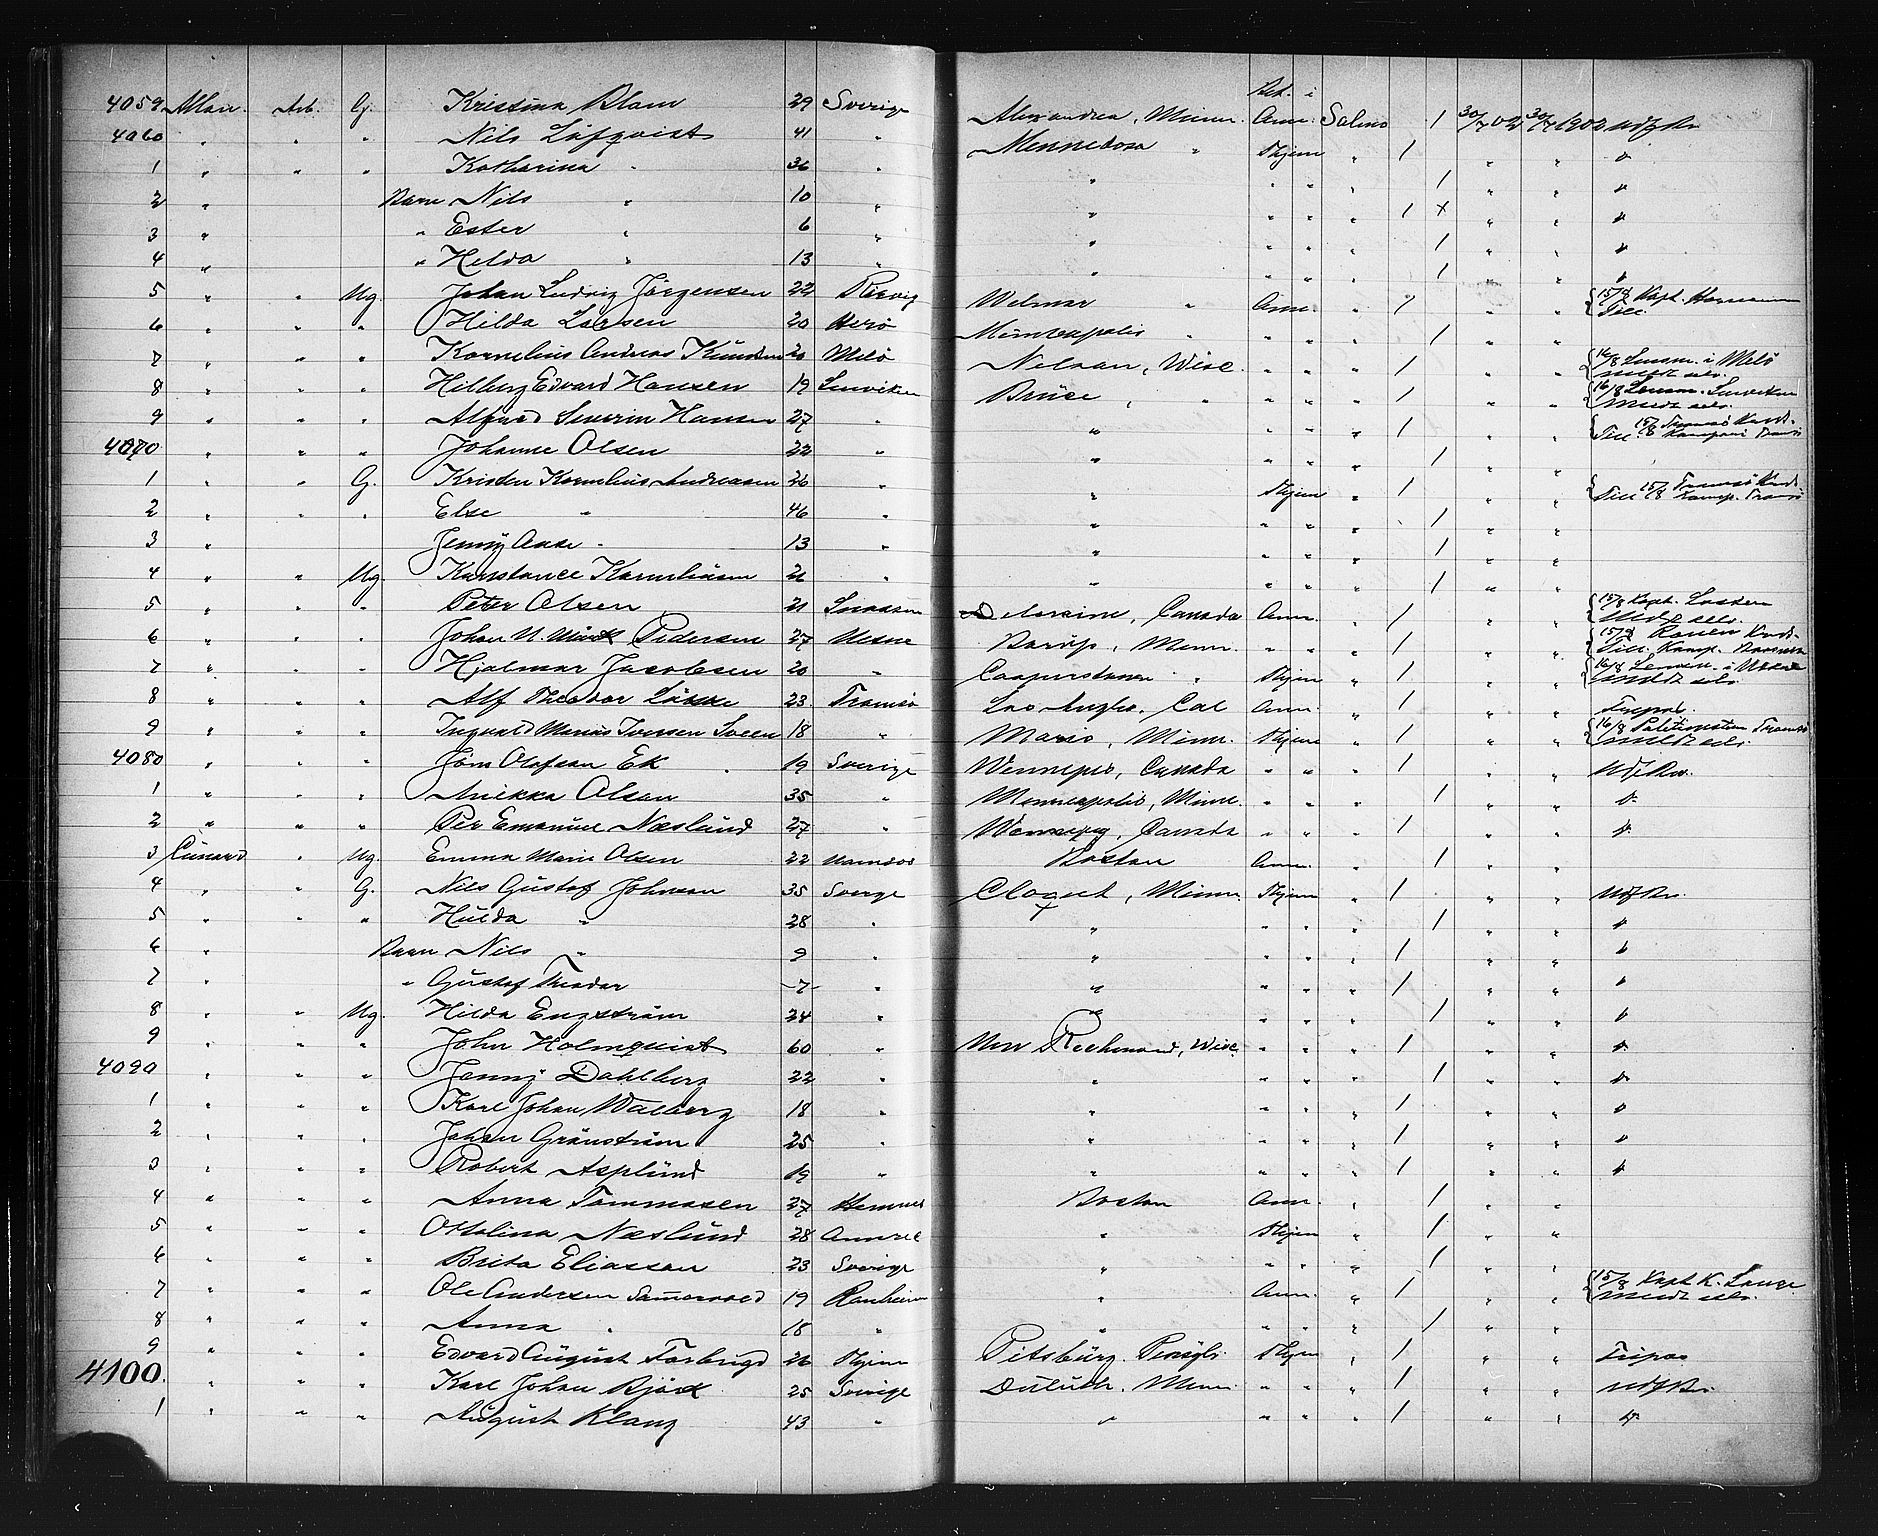 Bet. i
4059 Allan. Arb. G. Kristina Blom 29 Sverige Alexandria, Minn. Am. Salmo 1 30/7 02 30/7 1902 udf Kr
4060 " " " Nils Löfqvist 41 " Minnedosa " Thjem " 1 " " d
1 " " " Katharina " 36 " " " " " 1 " " d
2 " Barn Nils " 10 " " " " " 1 x " " d
3 " " Ester " 6 " " " " " 1 " " d
4 " " Hilda " 13 " " " " " 1 " " d
5 " " Ug. Johan Ludvig Jörgensen 22 Risvig Welmar " Am. " 1 " " 15/8 Kapt. Till.
6 " " " Hilda Larsen 20 Herö Minneapolis " " " " 1 " "
7 " " " Kornelius Andreas 20 Melö Nelson, Wisc. " " " 1 " " 16/8 Lensm. i Melö meldt selv.
8 " " " Hilberg Edvard Hansen 19 Lenviken Bruce, " " " " 1 " " 16/8 Lensm. Lenviken meldt selv.
9 " " " Alfred Severin Hansen 27 " " " " " 1 " " Till. 15/8 Tromsö
4070 " " " Johanne Olsen 22 " " " " " 1 " "
1 " " G. Kristen Kornelius Andreasen 26 " " Thjem " 1 " " Till 15/8 Tromsö
2 " " " Else " 46 " " " " " 1 " "
3 " Jenny Aase " 13 " " " " " 1 " "
4 " " Ug. Konstance Korneliusen 21 " " " " " 1 " "
5 " " " Peter Olsen 21 Deloraine, Canada Am. " 1 " " 15/8 Kapt. meldt selv.
6 " " " Johan Pedersen 27 Nesne Minn. " " " 1 " " 15/8 Ranen Till.
7 " " " Hjalmar Jacobsen 20 " Cooperstown " Thjem " 1 " " 16/8 Lensm. i meldt selv.
8 " " " Alf Theodor 23 Tromsö Los Angles, Cal Am. " 1 " "
9 " " " Ingvald Marius Iversen Sveen 18 " Minn. Thjem " 1 " " 16/8 Tromsö meldt selv.
4080 " " " Jöns Olofson Ek 19 Sverige Wennepeg, Canada " " " 1 " " Udf Kr.
1 " " " Olson 35 " Minneapolis, Minn. " " " 1 " " d
2 " " " Per Emanuel Næslund 27 " Wennepeg, Canada " " " 1 " " d
3 Cunard " Ug. Emma Marie Olsen 22 Namsos Boston Am. " 1 " "
4 " " G. Nils Gustaf Johnson 35 Sverge Cloquet, Minn. Thjem " 1 " " Udf Kr.
5 " " " Hulda " 28 " " " " " 1 " " d
6 " Barn Nils " 9 " " " " " 1 " " d
7 " " Gustaf Theodor 7 " " " " " 1 " " d
8 " " Ug. Hilda Engström 24 " " " " " 1 " " d
9 " " " John Holmqvist 60 " New Rechmond, Wisc. " " " 1 " " d
4090 " " " Jenny Dahlberg 22 " " " " " 1 " " d
1 " " " Karl Johan Walberg 18 " " " " " 1 " " d
2 " " " Johan Grönström 25 " " " " " 1 " " d
3 " " " Robert Asplund 19 " " " " " 1 " " d
4 " " " Anna Tommasen 27 Hemnes Boston Am. " 1 " "
5 " " " Ottolina Næslund 28 " Thjem " 1 " "
6 " " " Brita Eliasson 23 Sverige " " " " 1 " "
7 " " " Ole Andersen 19 Ranheim " Am. " 1 " " 15/8 Kapt. K. Lange meldt selv.
8 " " " Anna " 18 " " " " " 1 " "
9 " " " Edvard August 26 Thjem Pitsburg. Thjem " 1 " "
4100 " " " Karl Johan Björk 25 Sverige Duluth. Minn. " " " 1 " " Udf Kr.
1 " " " August Klang 43 " " " " " 1 " " d